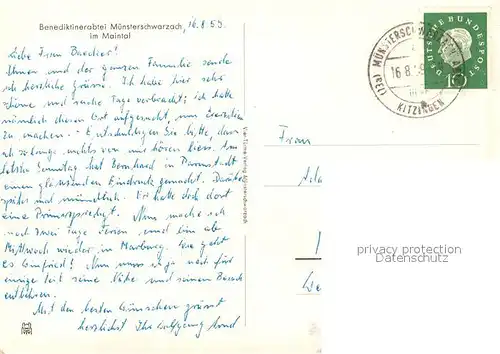 Benediktinerabtei Münsterschwarzach,
im Maintal
16.8.59.
Liebe Frau Baecker!
Ihnen und der ganzen Familie sende
ich herzliche Grüsse. Ich habe hier sehr
schöne und reiche Tage verbracht; ich hatte
nämlich diesen Ort aufgesucht, um Exerzitien
zu machen. – Entschuldigen Sie bitte, dass
ich so lange nichts von mir hören liess. Am
letzten Sonntag hat Bernhard in Darmstadt
einen glänzenden Eindruck gemacht. Darüber
später mal mündlich. Er hatte sich dort
eine Primizpredigt. Nun mache ich
noch zwei Tage Ferien und bin ab
Mittwoch wieder in Marburg. Wie geht
es Winfried? Nun muss ja noch für
einige Zeit seine Nähe und seinen Besuch
entbehren.
Mit den besten Wünschen grüsst
herzlichst Ihr Wolfgang
(13a) MÜNSTERSCHWARZACH
16.8.59
KITZINGEN
DEUTSCHE BUNDESPOST
10
Frau
privacy protection
Datenschutz